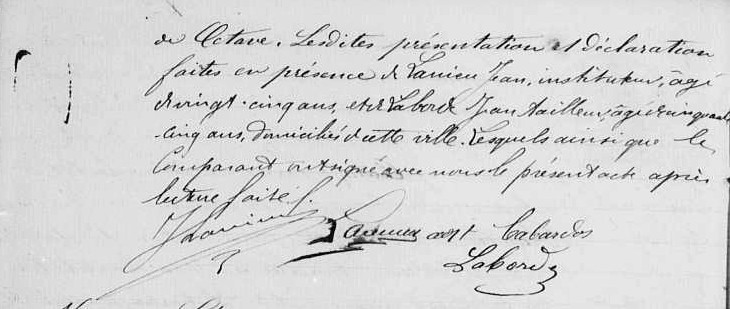 de Octave. Lesdites présentation et déclaration
faites en présence de Lanieu Jean, instituteur, âgé
de vingt-cinq ans, et de Laborde Jean tailleur, âgé de cinquante
-cinq ans, domiciliés de cette ville. Lesquels ainsi que le
Comparant ont signé avec nous le présent acte après
lecture faite.
adjt Cabardos
Laborde